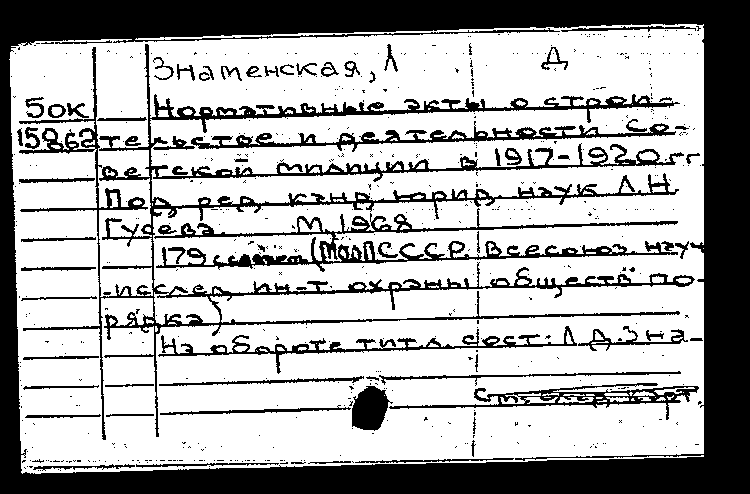 Знаменская, Л Д
50к Нормативные акты о строи-
15862 тельстве и деятельности со-
ветской милиции в 1917-1920 гг.
Под ред. канд. юрид. наук Л.Н.
Гусева. М, 1968
179 (МООП СССР. Всесоюз. науч
-исслед. ин-т. охраны обществ по-
рядка).
На обороте тит.л. сост: Л.Д.Зна-
См. след. карт.